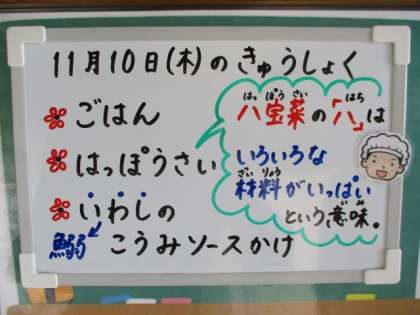 11月10日(木)のきゅうしょく
ごはん
はっぽうさい
いわしの
鰯 こうみソースかけ
はっぽうさい はち
八宝菜の「八」は
いろいろな
ざいりょう
材料がいっぱい
という意味。